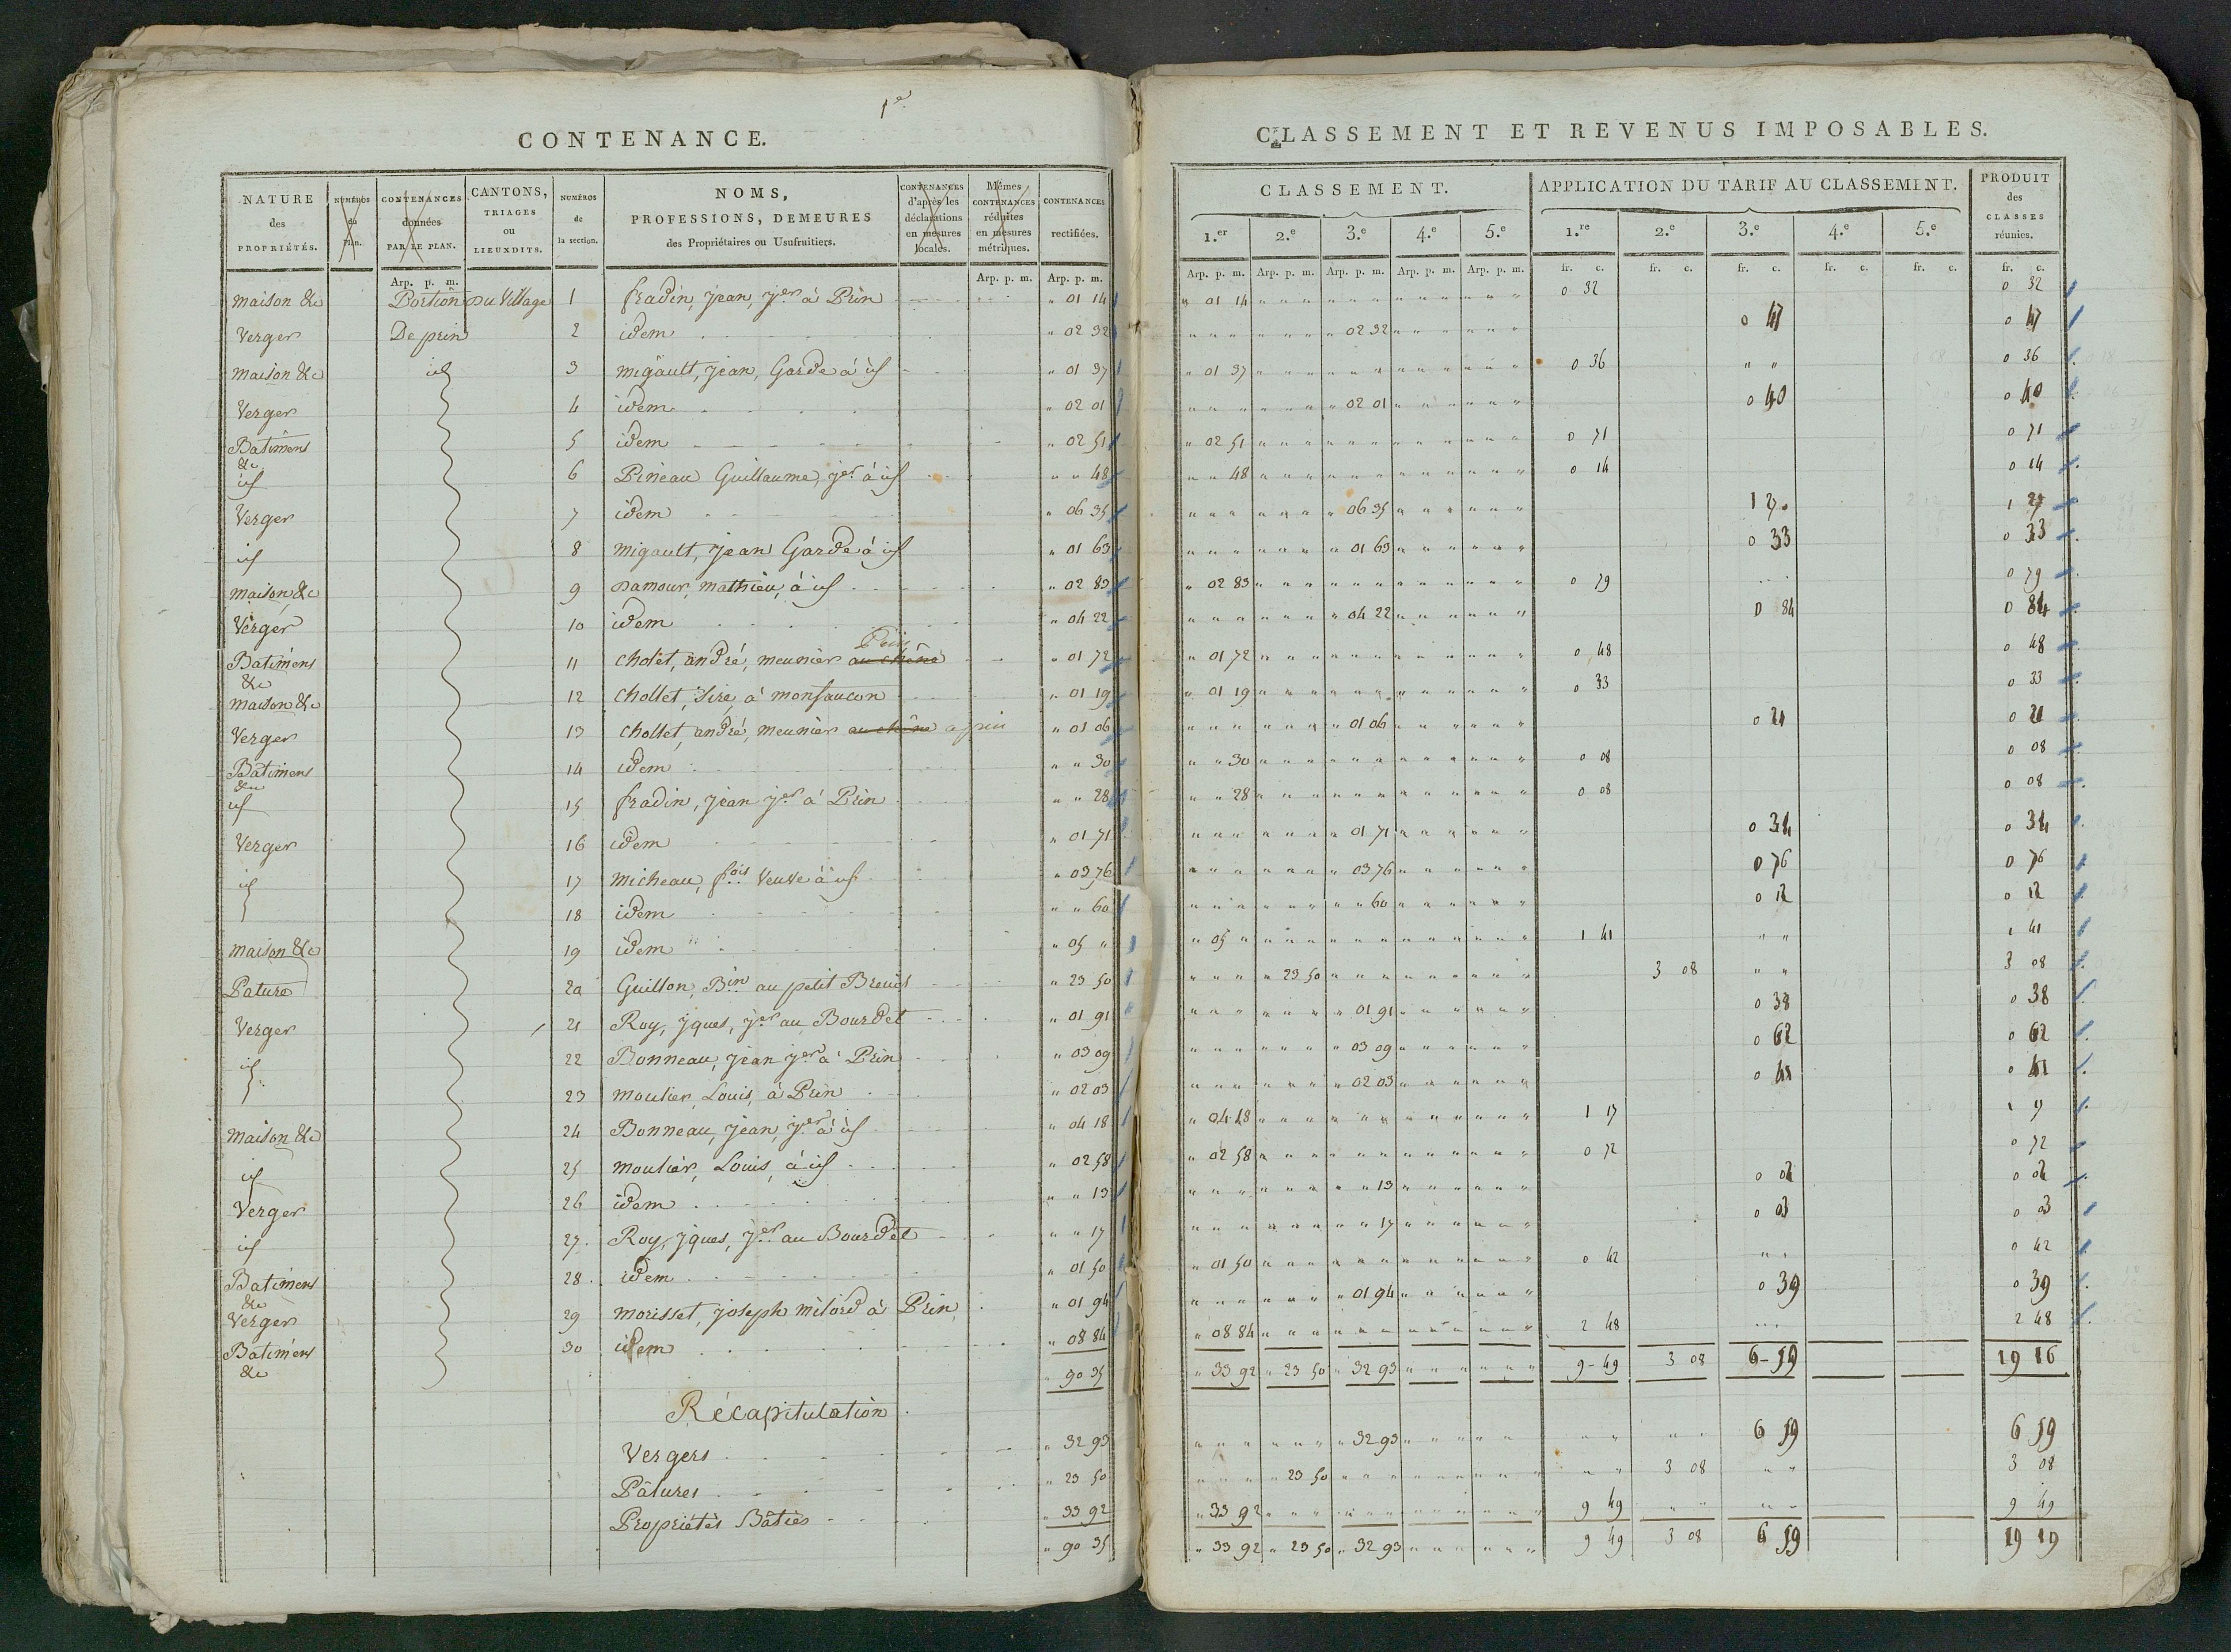 1.er
CONTENANCE.
NATURE des PROPRIÉTÉS. NUMÉROS du Plan. CONTENANCES données PAR LE PLAN. CANTONS, TRIAGES ou LIEUXDITS. NUMÉROS de la section. NOMS, PROFESSIONS, DEMEURES des Propriétaires ou Usufruitiers. CONTENANCES d'après les déclarations en mesures locales. Mêmes CONTENANCES réduites en mesures métriques. CONTENANCES rectifiées.
Arp. p. m. Arp. p. m. Arp. p. m.
maison &c Portion Du Village 1 fradin, jean, j.er à Prin " 01 14
Verger De prin 2 idem " 02 32
maison &c id 3 migault, jean, Garde à id " 01 37
Verger 4 idem " 02 01
Batimens &c 5 idem " 02 51
id 6 Pineau Guillaume, j.er à id " " 48
Verger 7 idem " 06 35
id 8 migault, jean Garde à id " 01 63
maison &c 9 Damour, mathieu, à id " 02 83
Verger 10 idem " 04 22
Batimens &c 11 cholet, andré, meunier au chêne Prin " 01 72
maison &c 12 chollet, Sire, à monfaucon " 01 19
Verger 13 chollet, andré, meunier au chêne a prin " 01 06
Bâtimens &c 14 idem " " 30
id 15 fradin, jean j.er à Prin " " 28
Verger 16 idem " 01 71
id 17 micheau, f.ois Veuve à id " 03 76
18 idem " " 60
maison &c 19 idem " 05 "
Pature 20 Guillon, B.in au petit Breuil " 23 50
Verger 21 Roy, jques, j.er au Bourdet " 01 91
id 22 Bonneau, jean j.er à Prin " 03 09
23 moulier, Louis, à Prin " 02 03
maison &c 24 Bonneau, jean, j.er à id " 04 18
id 25 moulier, Louis, à id " 02 58
Verger 26 idem " " 13
id 27. Roy, jques, j.er au Bourdet " " 17
Batimens &c 28. idem " 01 50
Verger 29 morisset, joseph milord à Prin " 01 94
Batimens &c 30 idem " 08 84
" 90 35
Récapitulation
Vergers " 32 93
Pâtures " 23 50
Propriétés Bâties " 33 92
" 90 35
CLASSEMENT ET REVENUS IMPOSABLES.
CLASSEMENT. APPLICATION DU TARIF AU CLASSEMENT. PRODUIT des CLASSES réunies.
1.er 2.e 3.e 4.e 5.e 1.re 2.e 3.e 4.e 5.e
Arp. p. m. Arp. p. m. Arp. p. m. Arp. p. m. Arp. p. m. fr. c. fr. c. fr. c. fr. c. fr. c. fr. c.
" 01 14 0 32 0 32
" 02 32 0 47 0 47
" 01 37 0 36 " " 0 36
" 02 01 0 40 0 40
" 02 51 0 71 0 71
" " 48 0 14 0 14
" 06 35 1 27 1 27
" 01 63 0 33 0 33
" 02 83 0 79 0 79
" 04 22 0 84 0 84
" 01 72 0 48 0 48
" 01 19 0 33 0 33
" 01 06 0 21 0 21
" " 30 0 08 0 08
" " 28 0 08 0 08
" 01 71 0 34 0 34
" 03 76 0 76 0 76
" " 60 0 12 0 12
" 05 " 1 41 " " 1 41
" 23 50 3 08 " " 3 08
" 01 91 0 38 0 38
" 03 09 0 62 0 62
" 02 03 0 41 0 41
" 04 18 1 17 1 17
" 02 58 0 72 0 72
" " 13 0 02 0 02
" " 17 0 03 0 03
" 01 50 0 42 " " 0 42
" 01 94 0 39 0 39
" 08 84 2 48 2 48
" 33 92 " 23 50 " 32 93 9 - 49 3 08 6 - 59 19 16
" 32 93 6 59 6 59
" 23 50 3 08 3 08
" 33 92 9 49 9 49
" 33 92 " 23 50 " 32 93 9 49 3 08 6 59 19 19